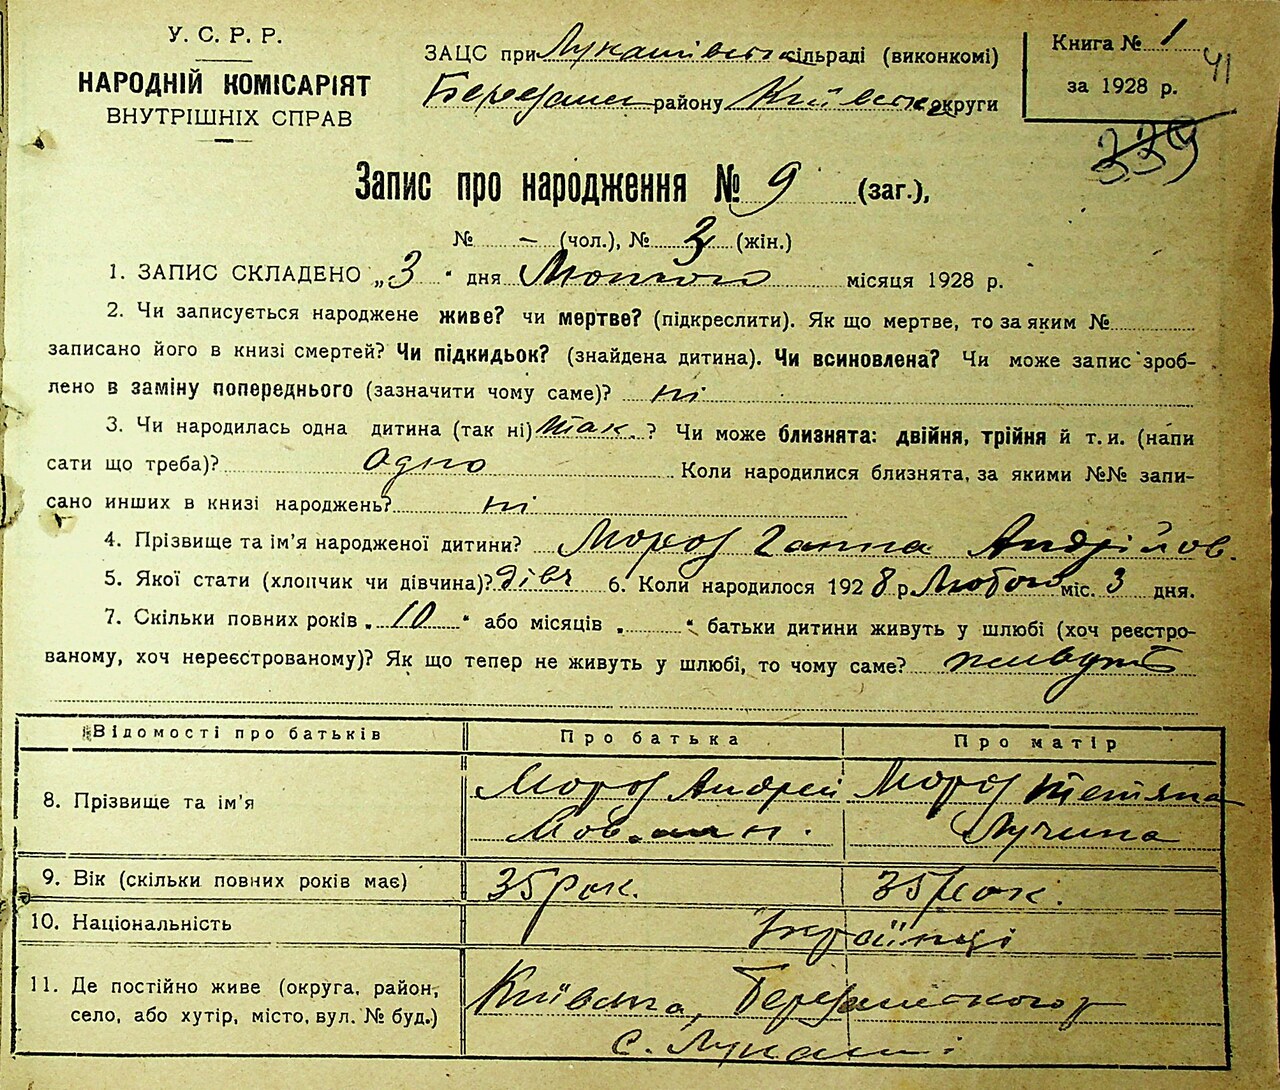 У. С. Р. Р.
НАРОДНІЙ КОМІСАРІЯТ
ВНУТРІШНІХ СПРАВ
ЗАЦС при Лукашівськ сільраді (виконкомі)
району Київської округи
Книга № 1
за 1928 р.
41
339
Запис про народження № 9 (заг.),
№ — (чол.), № 3 (жін.)
1. ЗАПИС СКЛАДЕНО „3" дня Лютого місяця 1928 р.
2. Чи записується народжене живе? чи мертве? (підкреслити). Як що мертве, то за яким №
записано його в книзі смертей? Чи підкидьок? (знайдена дитина). Чи всиновлена? Чи може запис зроб-
лено в заміну попереднього (зазначити чому саме)? ні
3. Чи народилась одна дитина (так ні) так. ? Чи може близнята: двійня, трійня й т. и. (напи
сати що треба)? одно Коли народилися близнята, за якими №№ запи-
сано инших в книзі народжень? ні
4. Прізвище та ім'я народженої дитини? Мороз Ганна Андрійов.
5. Якої стати (хлопчик чи дівчина)? дівч 6. Коли народилося 1928 р. Лютого міс. 3 дня.
7. Скільки повних років „10" або місяців „ " батьки дитини живуть у шлюбі (хоч реєстро-
ваному, хоч нереєстрованому)? Як що тепер не живуть у шлюбі, то чому саме? живуть
Відомості про батьків Про батька Про матір
8. Прізвище та ім'я Мороз Андрій Мороз Тетяна
9. Вік (скільки повних років має) 35 рок. 35 рок.
10. Національність Українці
11. Де постійно живе (округа, район,
село, або хутір, місто, вул. № буд.)
Київська,
с. Лукаші